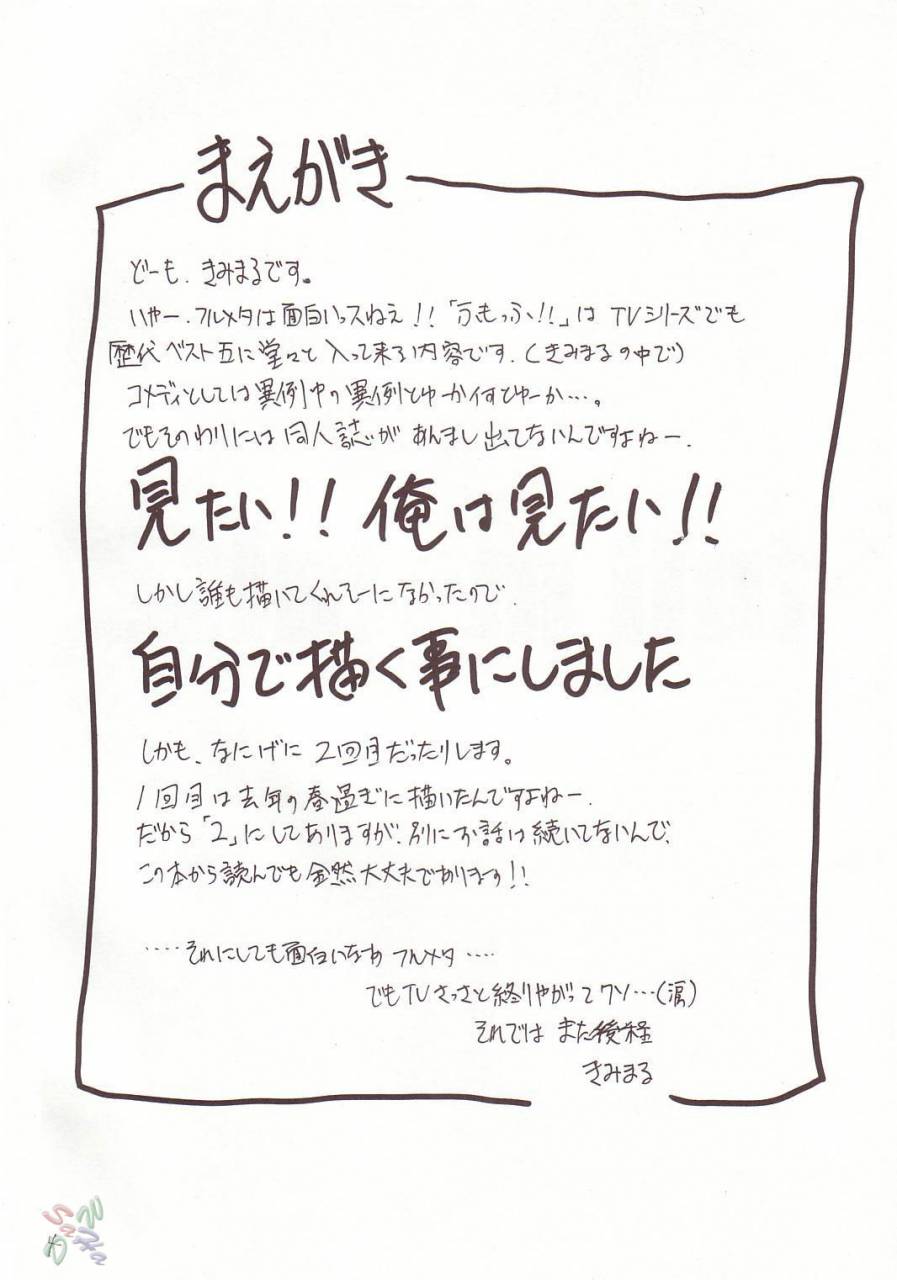 まえがき
どーも、きみまるです。
いやー、フルメタは面白いっスねえ!!「ふもっふ!!」は TVシリーズでも
歴代ベスト五に堂々と入って来る内容です。(きみまるの中で)
コメディとしては異例中の異例とゆーか何とゆーか…。
でもそのわりには同人誌があんまし出てないんですよねー。
見たい!! 俺は見たい!!
しかし誰も描いてくれそーになかったので、
自分で描く事にしました
しかも、なにげに2回目だったりします。
1回目は去年の春過ぎに描いたんですよねー。
だから「2」にしてありますが、別にお話は続いてないんで、
この本から読んでも全然大丈夫であります!!
‥‥それにしても面白いなあ フルメタ‥‥
でもTVさっさと終りやがってクソ…(涙)
それでは また後程
きみまる
4